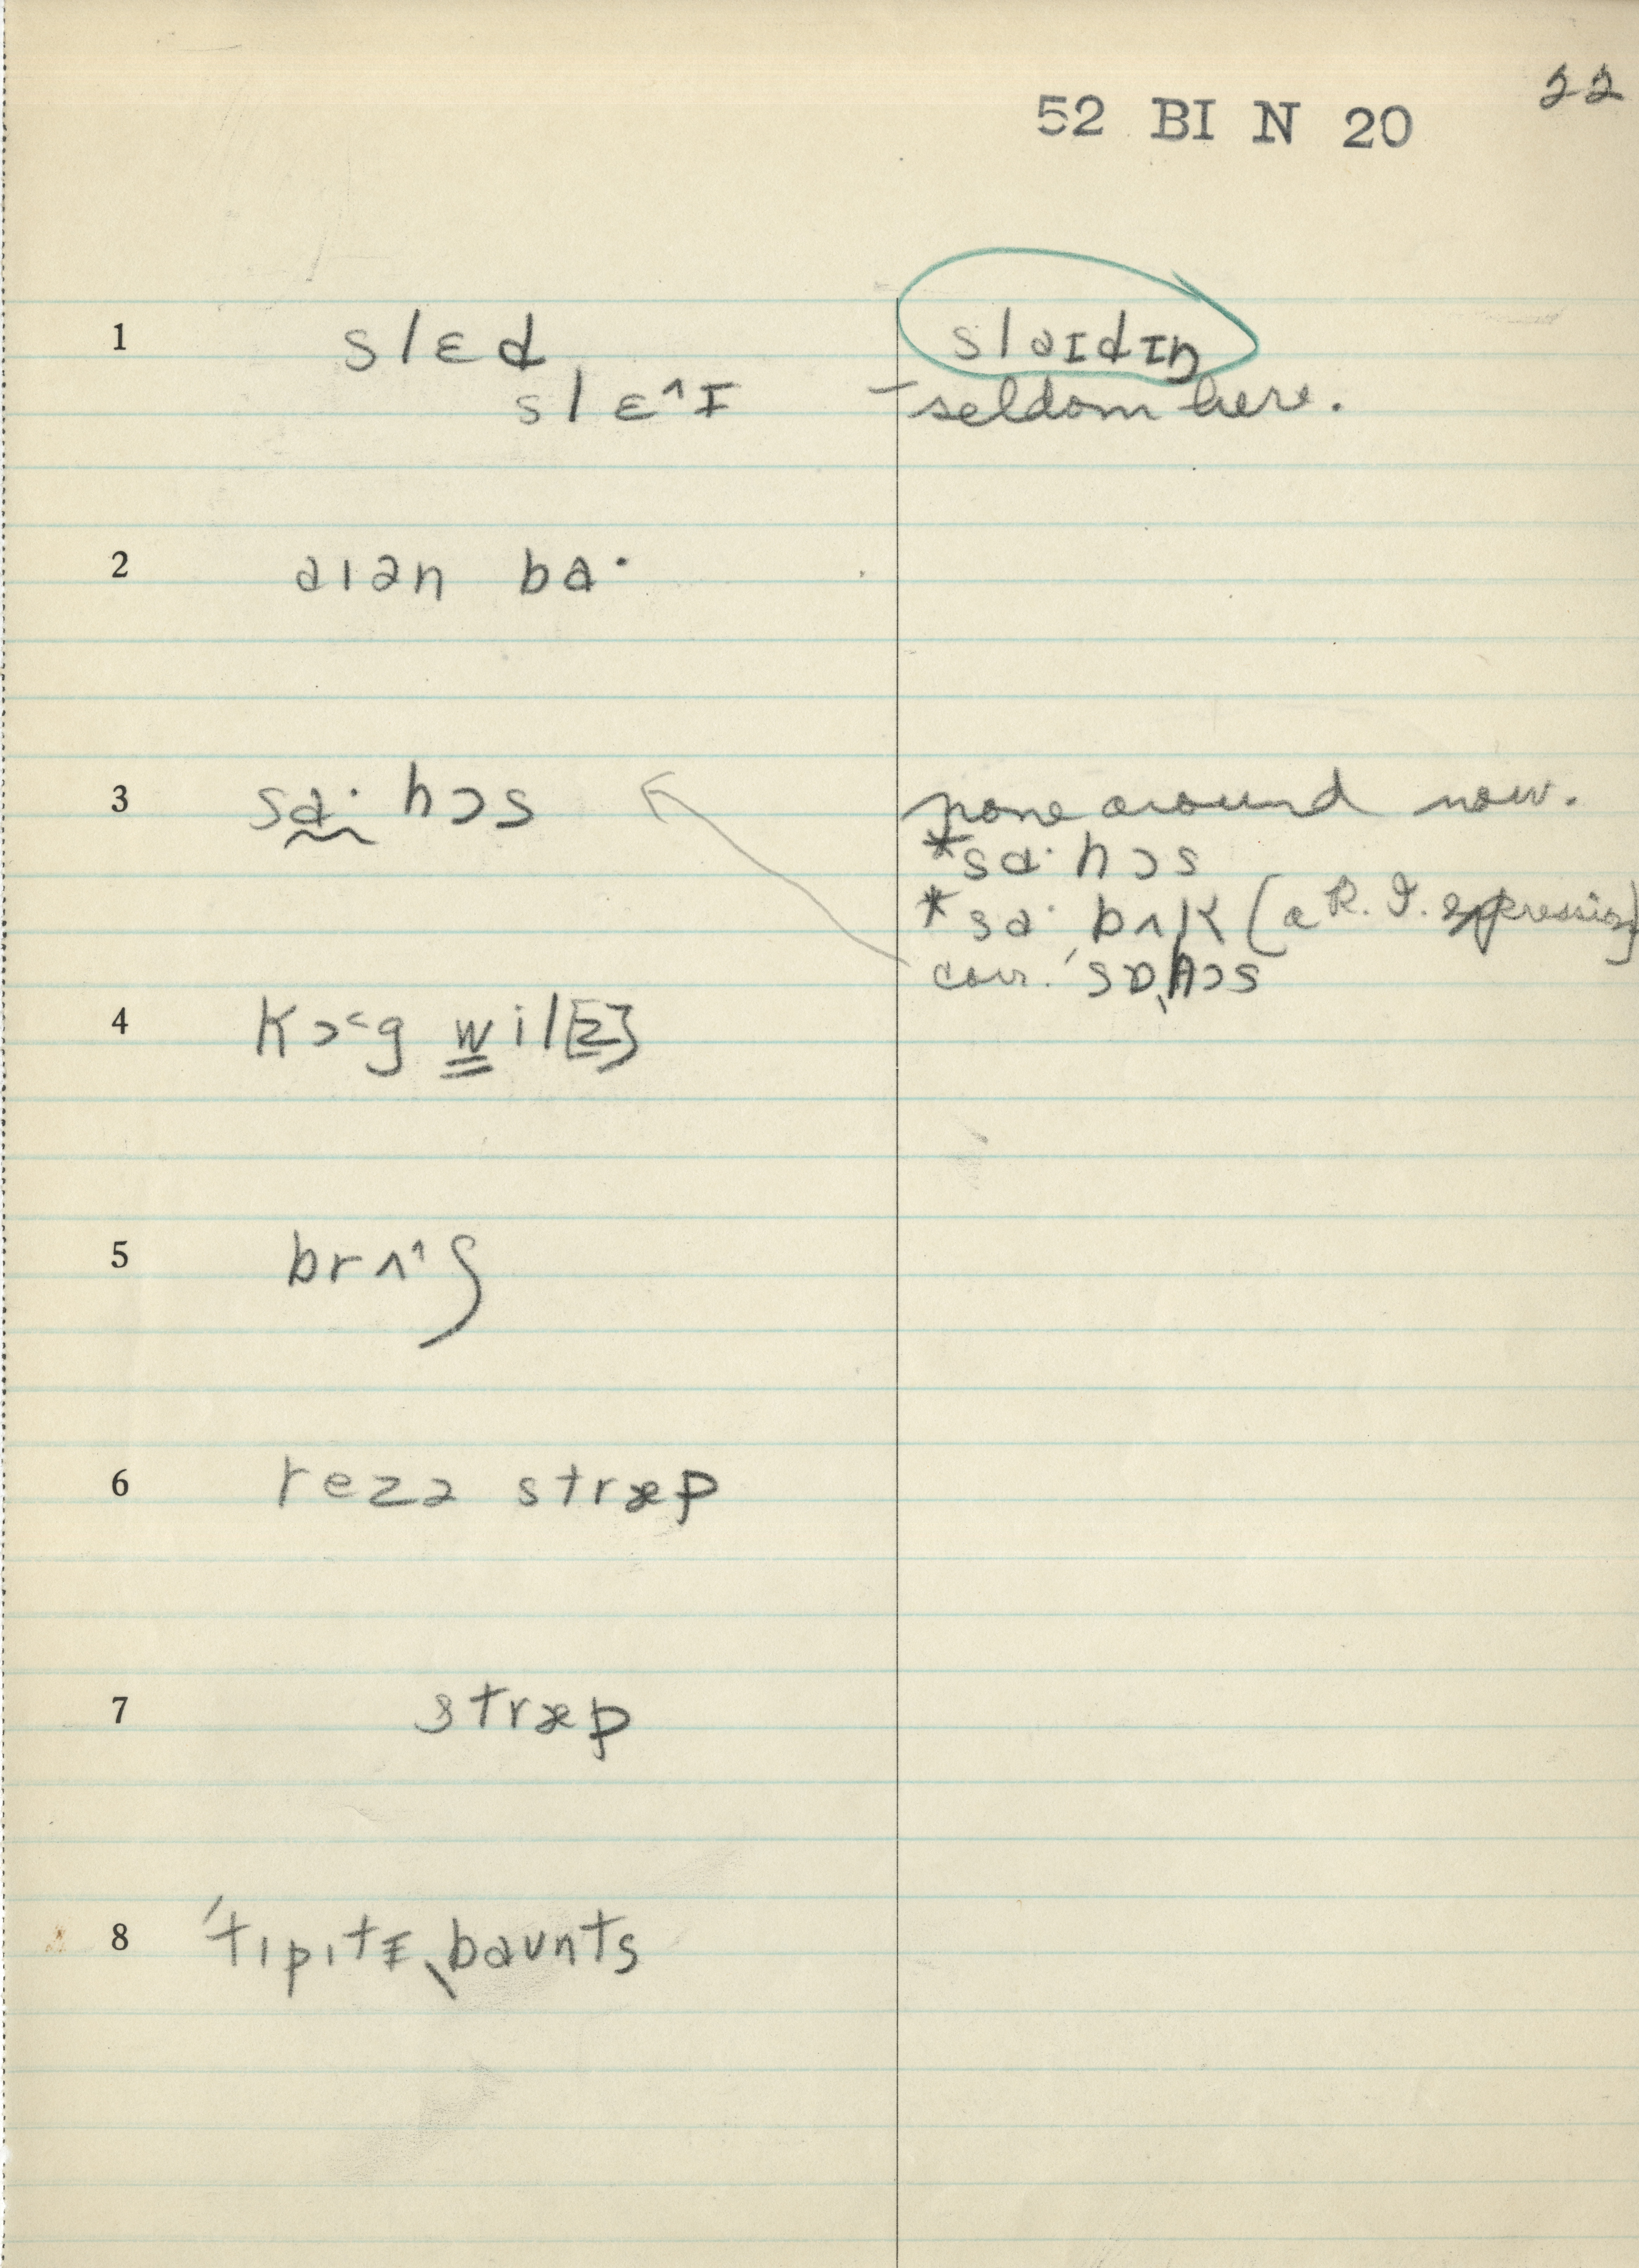 22
52 BI N 20
1 slɛd slaɪdɪŋ
slɛ^ɪ – seldom here.
2 aɪən ba·
3 sɑ· hɔs none around now.
*sɑ· hɔs
*sa· bʌk (a R. I. expression)
corr. ˈsɒˌhɔs
4 kɔ˂g wil[z]
5 brʌ^ʃ
6 rezə stræp
7 stræp
8 ˈtɪpɪtɪˌbaunts